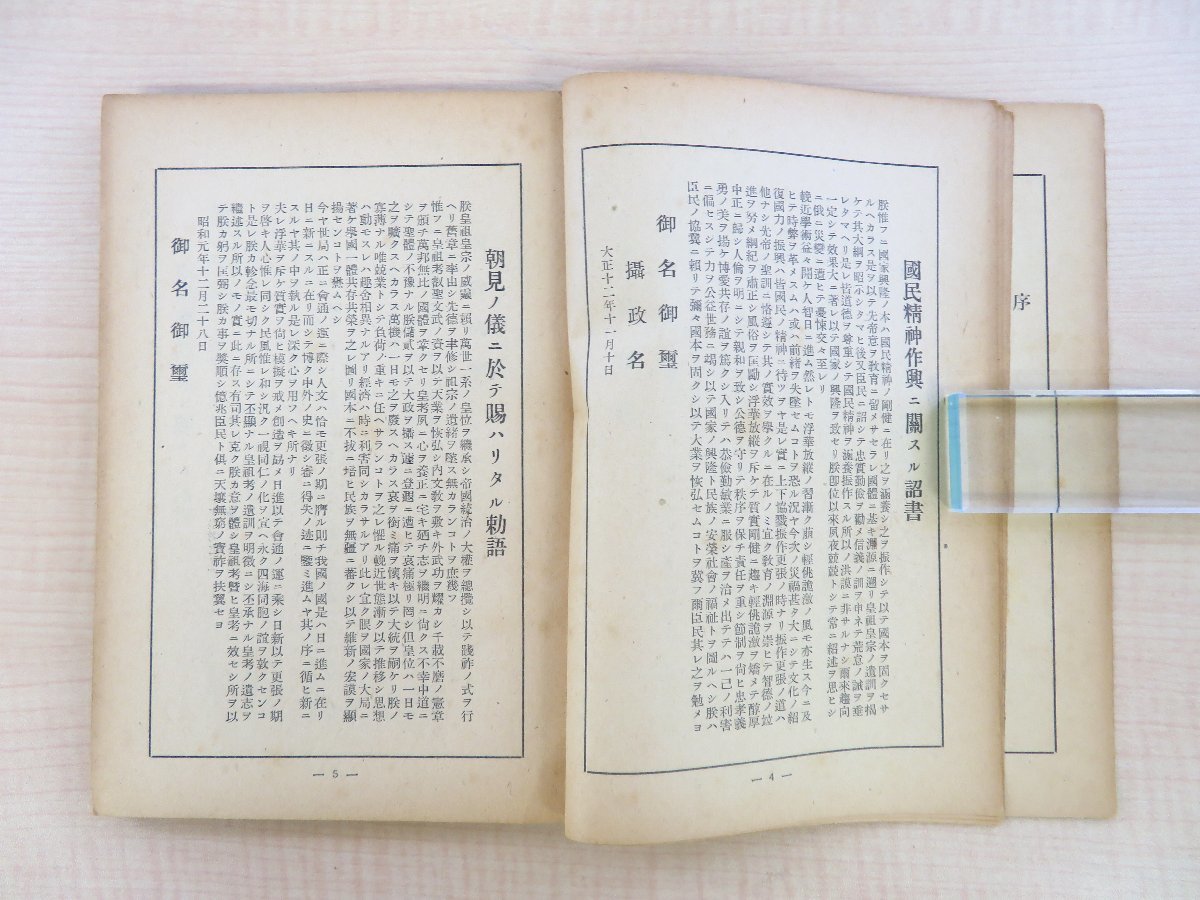 序
國民精神作興ニ關スル詔書
朕惟フニ國家興隆ノ本ハ國民精神ノ剛健ニ在リ之ヲ涵養シ之ヲ振作シテ以テ國本ヲ固クセサ
ルヘカラス是ヲ以テ先帝意ヲ敎育ニ留メサセラレ國體ニ基キ淵源ニ遡リ皇祖皇宗ノ遺訓ヲ揭
ケテ其大綱ヲ昭示シタマヒ後又臣民ニ詔シテ忠實勤儉ヲ勸メ信義ノ訓ヲ申ネテ荒怠ノ誡ヲ垂
レタマヘリ是レ皆道德ヲ尊重シテ國民精神ヲ涵養振作スル所以ノ洪謨ニ非サルナシ爾來趨向
一定シテ效果大ニ著レ以テ國家ノ興隆ヲ致セリ朕卽位以來夙夜兢兢トシテ常ニ紹述ヲ思ヒシ
ニ俄ニ災變ニ遭ヒテ憂悚交々至レリ
輓近學術益々開ケ人智日ニ進ム然レトモ浮華放縱ノ習漸ク萠シ輕佻詭激ノ風モ亦生ス今ニ及
ヒテ時弊ヲ革メスムハ或ハ前緒ヲ失墜セムコトヲ恐ル況ヤ今次ノ災禍甚タ大ニシテ文化ノ紹
復國力ノ振興ハ皆國民ノ精神ニ待ツヲヤ是レ實ニ上下協戮振作更張ノ時ナリ振作更張ノ道ハ
他ナシ先帝ノ聖訓ニ恪遵シテ其ノ實效ヲ擧クルニ在ルノミ宜ク敎育ノ淵源ヲ崇ヒテ智德ノ竝
進ヲ努メ綱紀ヲ肅正シ風俗ヲ匡勵シ浮華放縱ヲ斥ケテ質實剛健ニ趨キ輕佻詭激ヲ矯メテ醇厚
中正ニ歸シ人倫ヲ明ニシテ親和ヲ致シ公德ヲ守リテ秩序ヲ保チ責任ヲ重シ節制ヲ尙ヒ忠孝義
勇ノ美ヲ揚ケ博愛共存ノ誼ヲ篤クシ入リテハ恭儉勤敏業ニ服シ產ヲ治メ出テテハ一己ノ利害
ニ偏セスシテ力ヲ公益世務ニ竭シ以テ國家ノ興隆ト民族ノ安榮社會ノ福祉トヲ圖ルヘシ朕ハ
臣民ノ協翼ニ賴リテ彌々國本ヲ固クシ以テ大業ヲ恢弘セムコトヲ冀フ爾臣民其レ之ヲ勉メヨ
御名御璽
攝政名
大正十二年十一月十日
— 4 —
朝見ノ儀ニ於テ賜ハリタル勅語
朕皇祖皇宗ノ威靈ニ賴リ萬世一系ノ皇位ヲ繼承シ帝國統治ノ大權ヲ總攬シ以テ踐祚ノ式ヲ行
ヘリ舊章ニ率由シ先德ヲ聿修シ祖宗ノ遺緒ヲ墜ス無カランコトヲ庶幾フ
惟フニ皇祖考叡聖文武ノ資ヲ以テ天業ヲ恢弘シ內文敎ヲ敷キ外武功ヲ耀カシ千載不磨ノ憲章
ヲ頒チ萬邦無比ノ國體ヲ鞏クセリ皇考夙ニ心ヲ養正ニ宅キ廼チ志ヲ繼明ニ尙クス不幸中道ニ
シテ聖體ノ不豫ナル朕儲貳ヲ以テ大政ヲ攝ス遽ニ登遐ニ遭ヒテ哀痛極リ罔シ但皇位ハ一日モ
之ヲ曠クスヘカラス萬機ハ一日モ之ヲ廢スヘカラス哀ヲ銜ミ痛ヲ懷キ以テ大統ヲ嗣ケリ朕ノ
寡薄ナル唯兢業トシテ負荷ノ重キニ任ヘサランコトヲ之レ懼ル輓近世態漸ク以テ推移シ思想
ハ動モスレハ趣舍相異ナルアリ經濟ハ時ニ利害同シカラサルアリ此レ宜ク眼ヲ國家ノ大局ニ
著ケ擧國一體共存共榮ヲ之レ圖リ國本ニ不拔ニ培ヒ民族ヲ無疆ニ蕃クシ以テ維新ノ宏謨ヲ顯
揚センコトヲ懋ムヘシ
今ヤ世局ハ正ニ會通ノ運ニ際シ人文ハ恰モ更張ノ期ニ膺ル則チ我國ノ國是ハ日ニ進ムニ在リ
日ニ新ニスルニ在リ而シテ博ク中外ノ史ニ徵シ審ニ得失ノ迹ニ鑒ミ進ムヤ其ノ序ニ循ヒ新ニ
スルヤ其ノ中ヲ執ル是レ深ク心ヲ用フヘキ所ナリ
夫レ浮華ヲ斥ケ質實ヲ尙ヒ模擬ヲ戒メ創造ヲ勗メ日進以テ會通ノ運ニ乘シ日新以テ更張ノ期
ヲ啓キ人心惟レ同シク民風惟レ和シ汎ク一視同仁ノ化ヲ宣ヘ永ク四海同胞ノ誼ヲ敦クセンコ
ト是レ朕カ軫念最モ切ナル所ニシテ丕顯ナル皇祖考ノ遺訓ヲ明徵ニシ丕承ナル皇考ノ遺志ヲ
繼述スル所以ノモノ實ニ此ニ存ス有司其レ克ク朕カ意ヲ體シ皇祖考曁ヒ皇考ニ效セシ所ヲ以
テ朕カ躬ヲ匡弼シ朕カ事ヲ奬順シ億兆臣民ト俱ニ天壤無窮ノ寶祚ヲ扶翼セヨ
昭和元年十二月二十八日
御名御璽
— 5 —